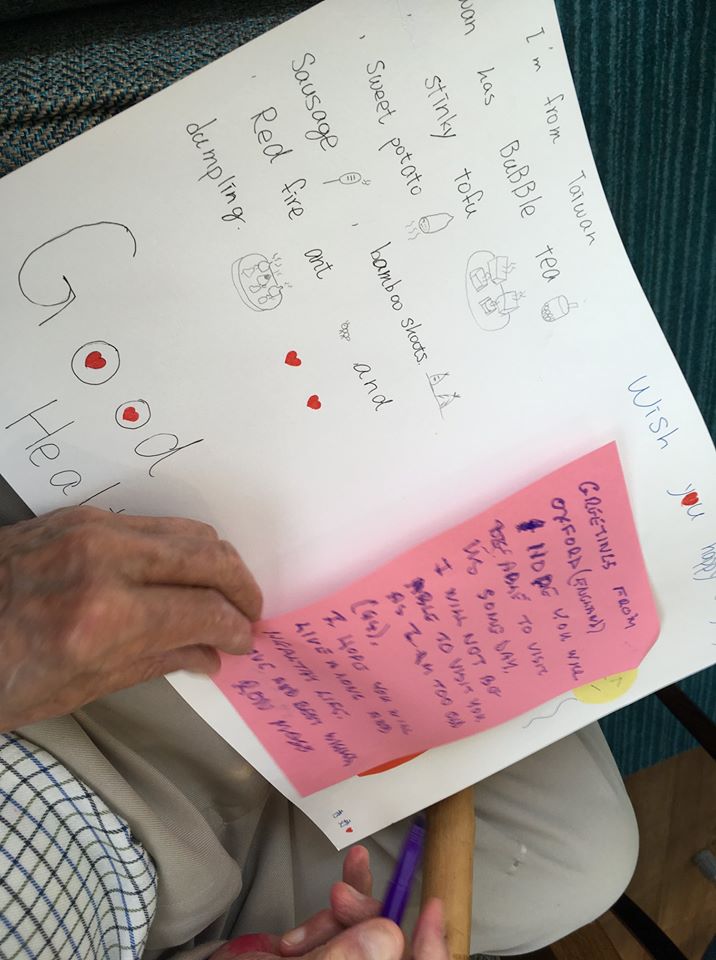 I'm from Taiwan
wan has BuBBle tea
stinky tofu
, Sweet potato , bamboo shoots.
Sausage
, Red fire ant and
dumpling.
Good
Heal
Wish you happy
GREETINGS FROM
OXFORD (ENGLAND)
I HOPE YOU WILL
BE ABLE TO VISIT
US SOME DAY,
I WILL NOT BE
ABLE TO VISIT YOU,
AS I AM TOO OLD
I HOPE YOU WILL
LIVE A LONG AND
HEALTHY LIFE.
AND BEST WISHES,
RON